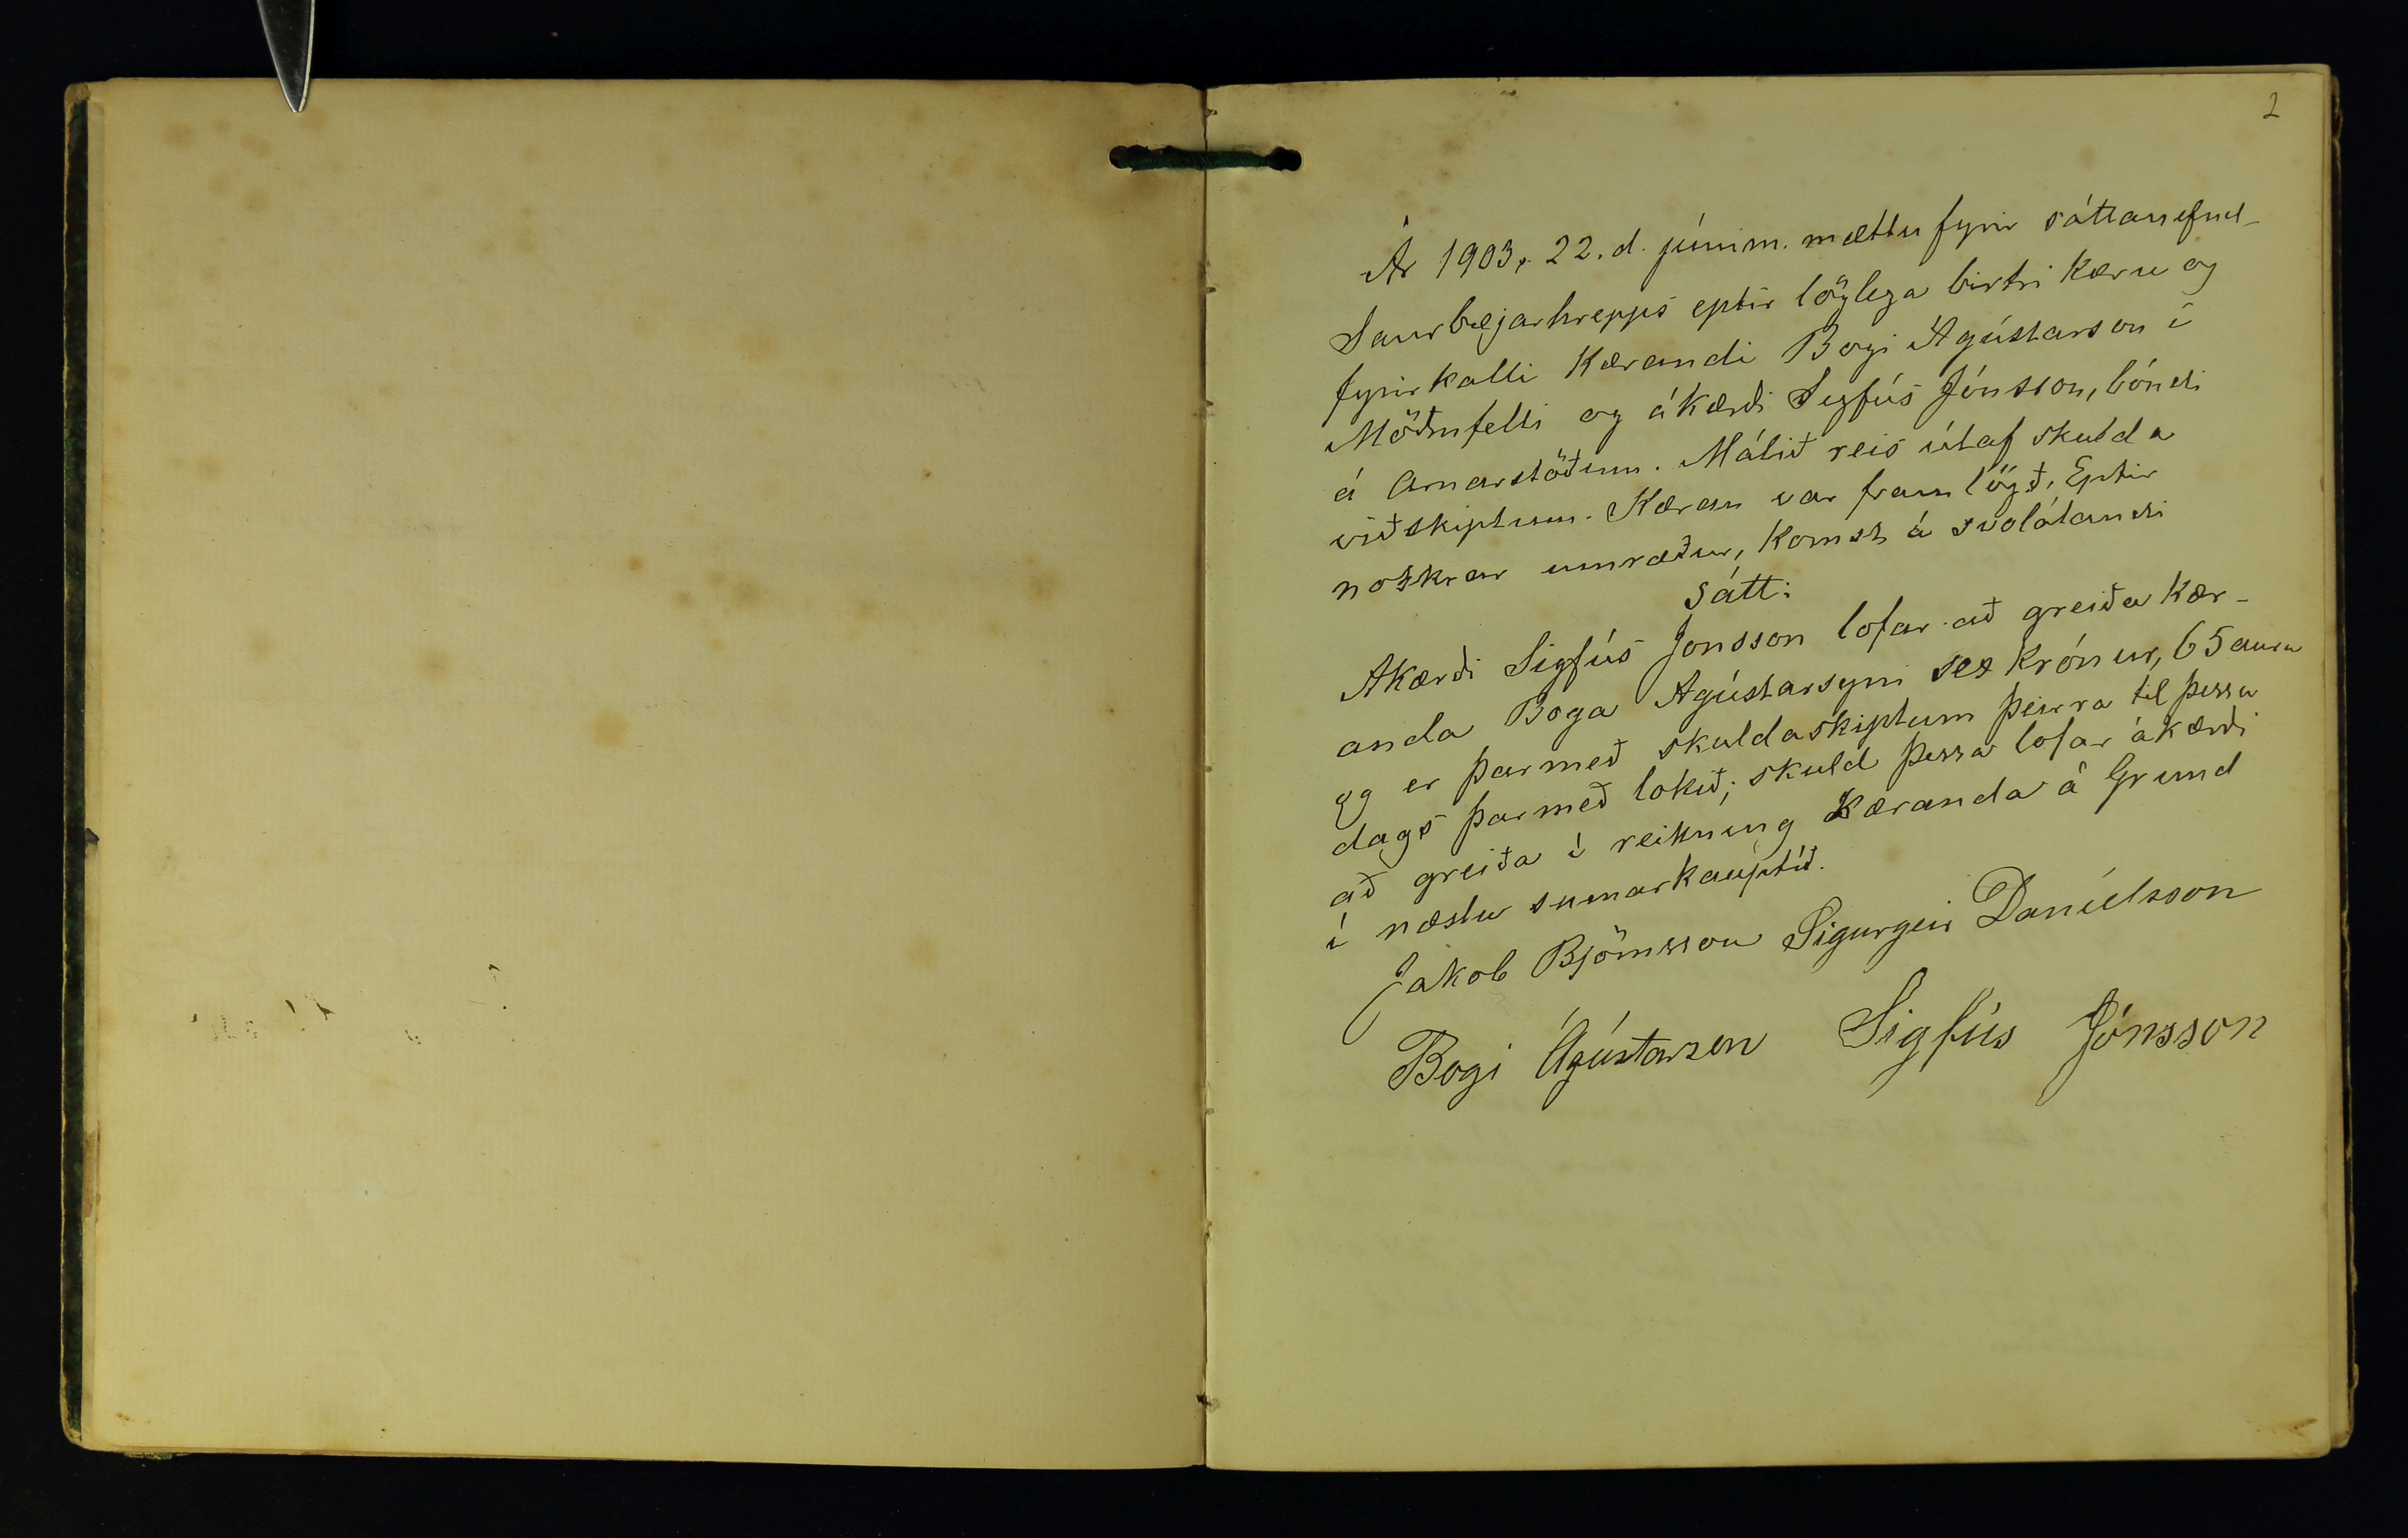 2
Ár 1903, 22. d. júním. mættu fyrir sáttanefnd
Saurbæjarhrepps eptir löglega birtri kæru og
fyrirkalli kærandi Bogi Ágústarson í
Möðrufelli og ákærði Sigfús Jónsson, bóndi
á Arnarstöðum. Málið reis útaf skulda
viðskiptum. Kæran var fram lögð. Eptir
nokkrar umræður, komst á svolátandi
sátt:
Akærði Sigfús Jonsson lofar að greiða kær-
anda Boga Agústarsyni sex krónur, 65 aura
og er þarmeð skuldaskiptum þeirra til þessa
dags þarmeð lokið; skuld þessa lofar ákærði
að greiða í reikning kæranda á Grund
í næstu sumarkauptíð.
Jakob Björnsson Sigurgeir Daníelsson
Bogi Ágústarson Sigfús Jónsson